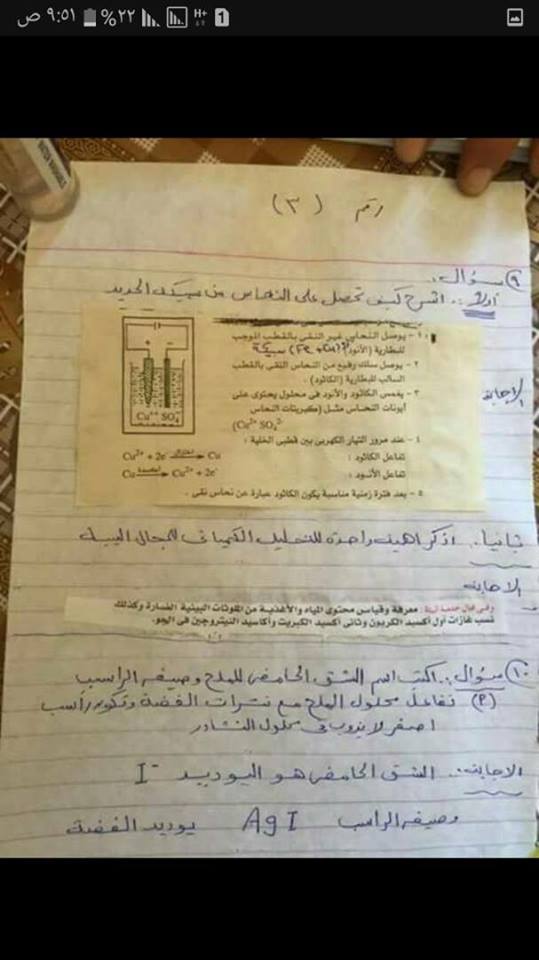 ٩:٥١ ص ٢٢% H+ 1
رقم (٣)
٩) سؤال..
أولا.. اشرح كيف تحصل على النحاس من سبيكة الحديد
١ - يوصل النحاس غير النقى بالقطب الموجب
للبطارية (الأنود) (Fe + Cu) سبيكة
٢ - يوصل سلك رفيع من النحاس النقى بالقطب
السالب للبطارية (الكاثود).
٣ - يغمس الكاثود والأنود فى محلول يحتوى على
أيونات النحاس مثل (كبريتات النحاس
(Cu²⁺ SO₄²⁻
Cu⁺⁺ SO₄⁻
٤ - عند مرور التيار الكهربى بين قطبى الخلية :
تفاعل الكاثود : Cu²⁺ + 2e⁻ اختزال Cu
تفاعل الأنود : Cu أكسدة Cu²⁺ + 2e⁻
٥ - بعد فترة زمنية مناسبة يكون الكاثود عبارة عن نحاس نقى .
الاجابة
ثانيا.. اذكر اهمية واحدة للتحليل الكيميائى للمجال البيئة
الاجابة
وفى مجال خدمة البيئة : معرفة وقياس محتوى المياه والأغذية من الملوثات البيئية الضارة وكذلك
نسب غازات أول أكسيد الكربون وثانى أكسيد الكبريت وأكاسيد النيتروجين فى الجو.
١٠) سؤال.. اكتب اسم الشق الحامضى للملح وصيغه الراسب
(٢) تفاعل محلول الملح مع نترات الفضة وتكون راسب
اصفر لا يذوب فى محلول النشادر
الاجابة.. الشق الحامضى هو اليوديد I⁻
وصيغه الراسب AgI يوديد الفضة